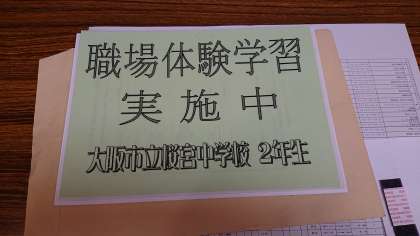 職場体験学習
実施中
大阪市立桜宮中学校 2年生